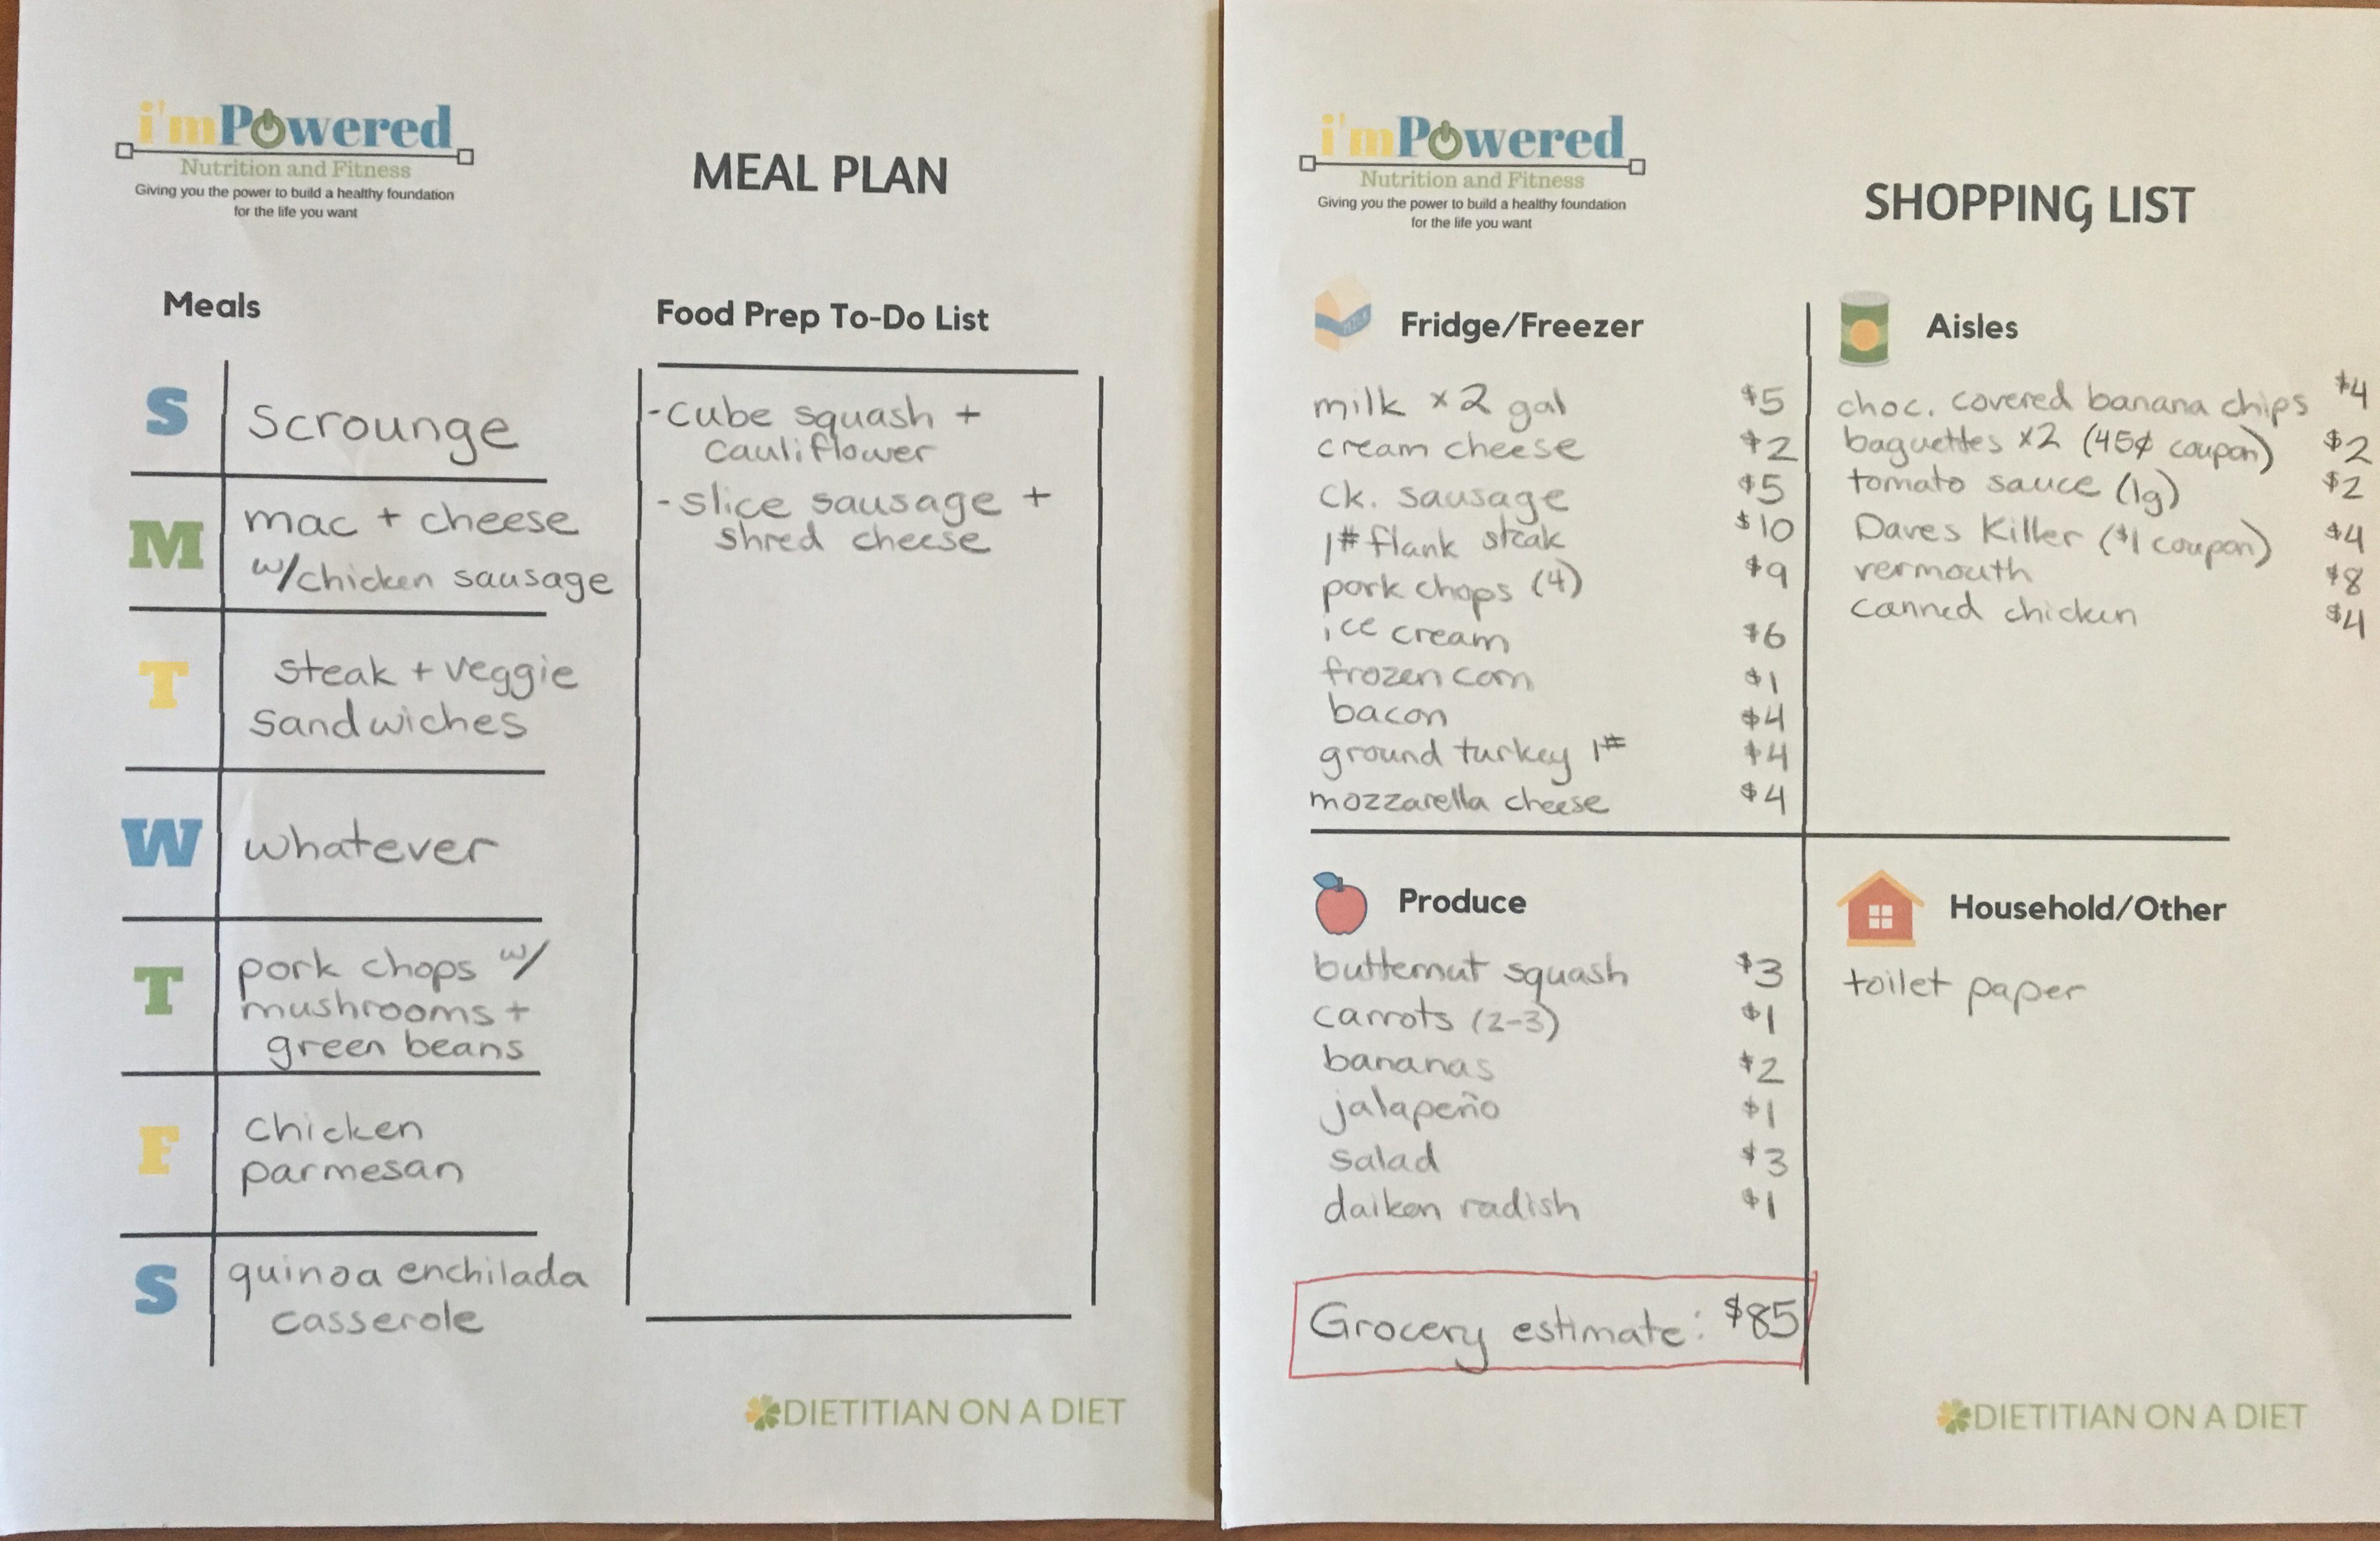 i'mPowered
Nutrition and Fitness
Giving you the power to build a healthy foundation
for the life you want
MEAL PLAN
Meals
S
scrounge
M
mac + cheese
w/chicken sausage
T
steak + veggie
sandwiches
W
whatever
T
pork chops w/
mushrooms +
green beans
F
chicken
parmesan
S
quinoa enchilada
casserole
Food Prep To-Do List
-cube squash +
cauliflower
-slice sausage +
shred cheese
DIETITIAN ON A DIET
i'mPowered
Nutrition and Fitness
Giving you the power to build a healthy foundation
for the life you want
SHOPPING LIST
MILK
Fridge/Freezer
milk x2 gal $5
cream cheese $2
ck. sausage $5
1# flank steak $10
pork chops (4) $9
ice cream $6
frozen corn $1
bacon $4
ground turkey 1# $4
mozzarella cheese $4
Aisles
choc. covered banana chips $4
baguettes x2 (45¢ coupon) $2
tomato sauce (1g) $2
Daves Killer ($1 coupon) $4
vermouth $8
canned chicken $4
Produce
butternut squash $3
carrots (2-3) $1
bananas $2
jalapeño $1
salad $3
daikon radish $1
Household/Other
toilet paper
Grocery estimate: $85
DIETITIAN ON A DIET